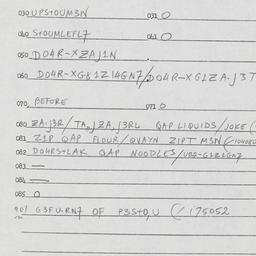 030 UPSTOUM3N 031 O
040 STOUMLEFL7 041 O
050 DO4R-XZAJ1N
060 DO4R-XG81Z14GN7/DO4R-XG1ZA.J3T
070 BEFORE 071 O
080 ZA.J3R/TA,JZA.J3RL GAP LIQUIDS/JOKE
081 Z1P GAP FLOUR/QVAYN ZIPT M3N
082 DO4RSTLAK GAP NOODLES
083 —
084 —
085 O
901 G3FU.RN7 OF P3STO,U (/175052